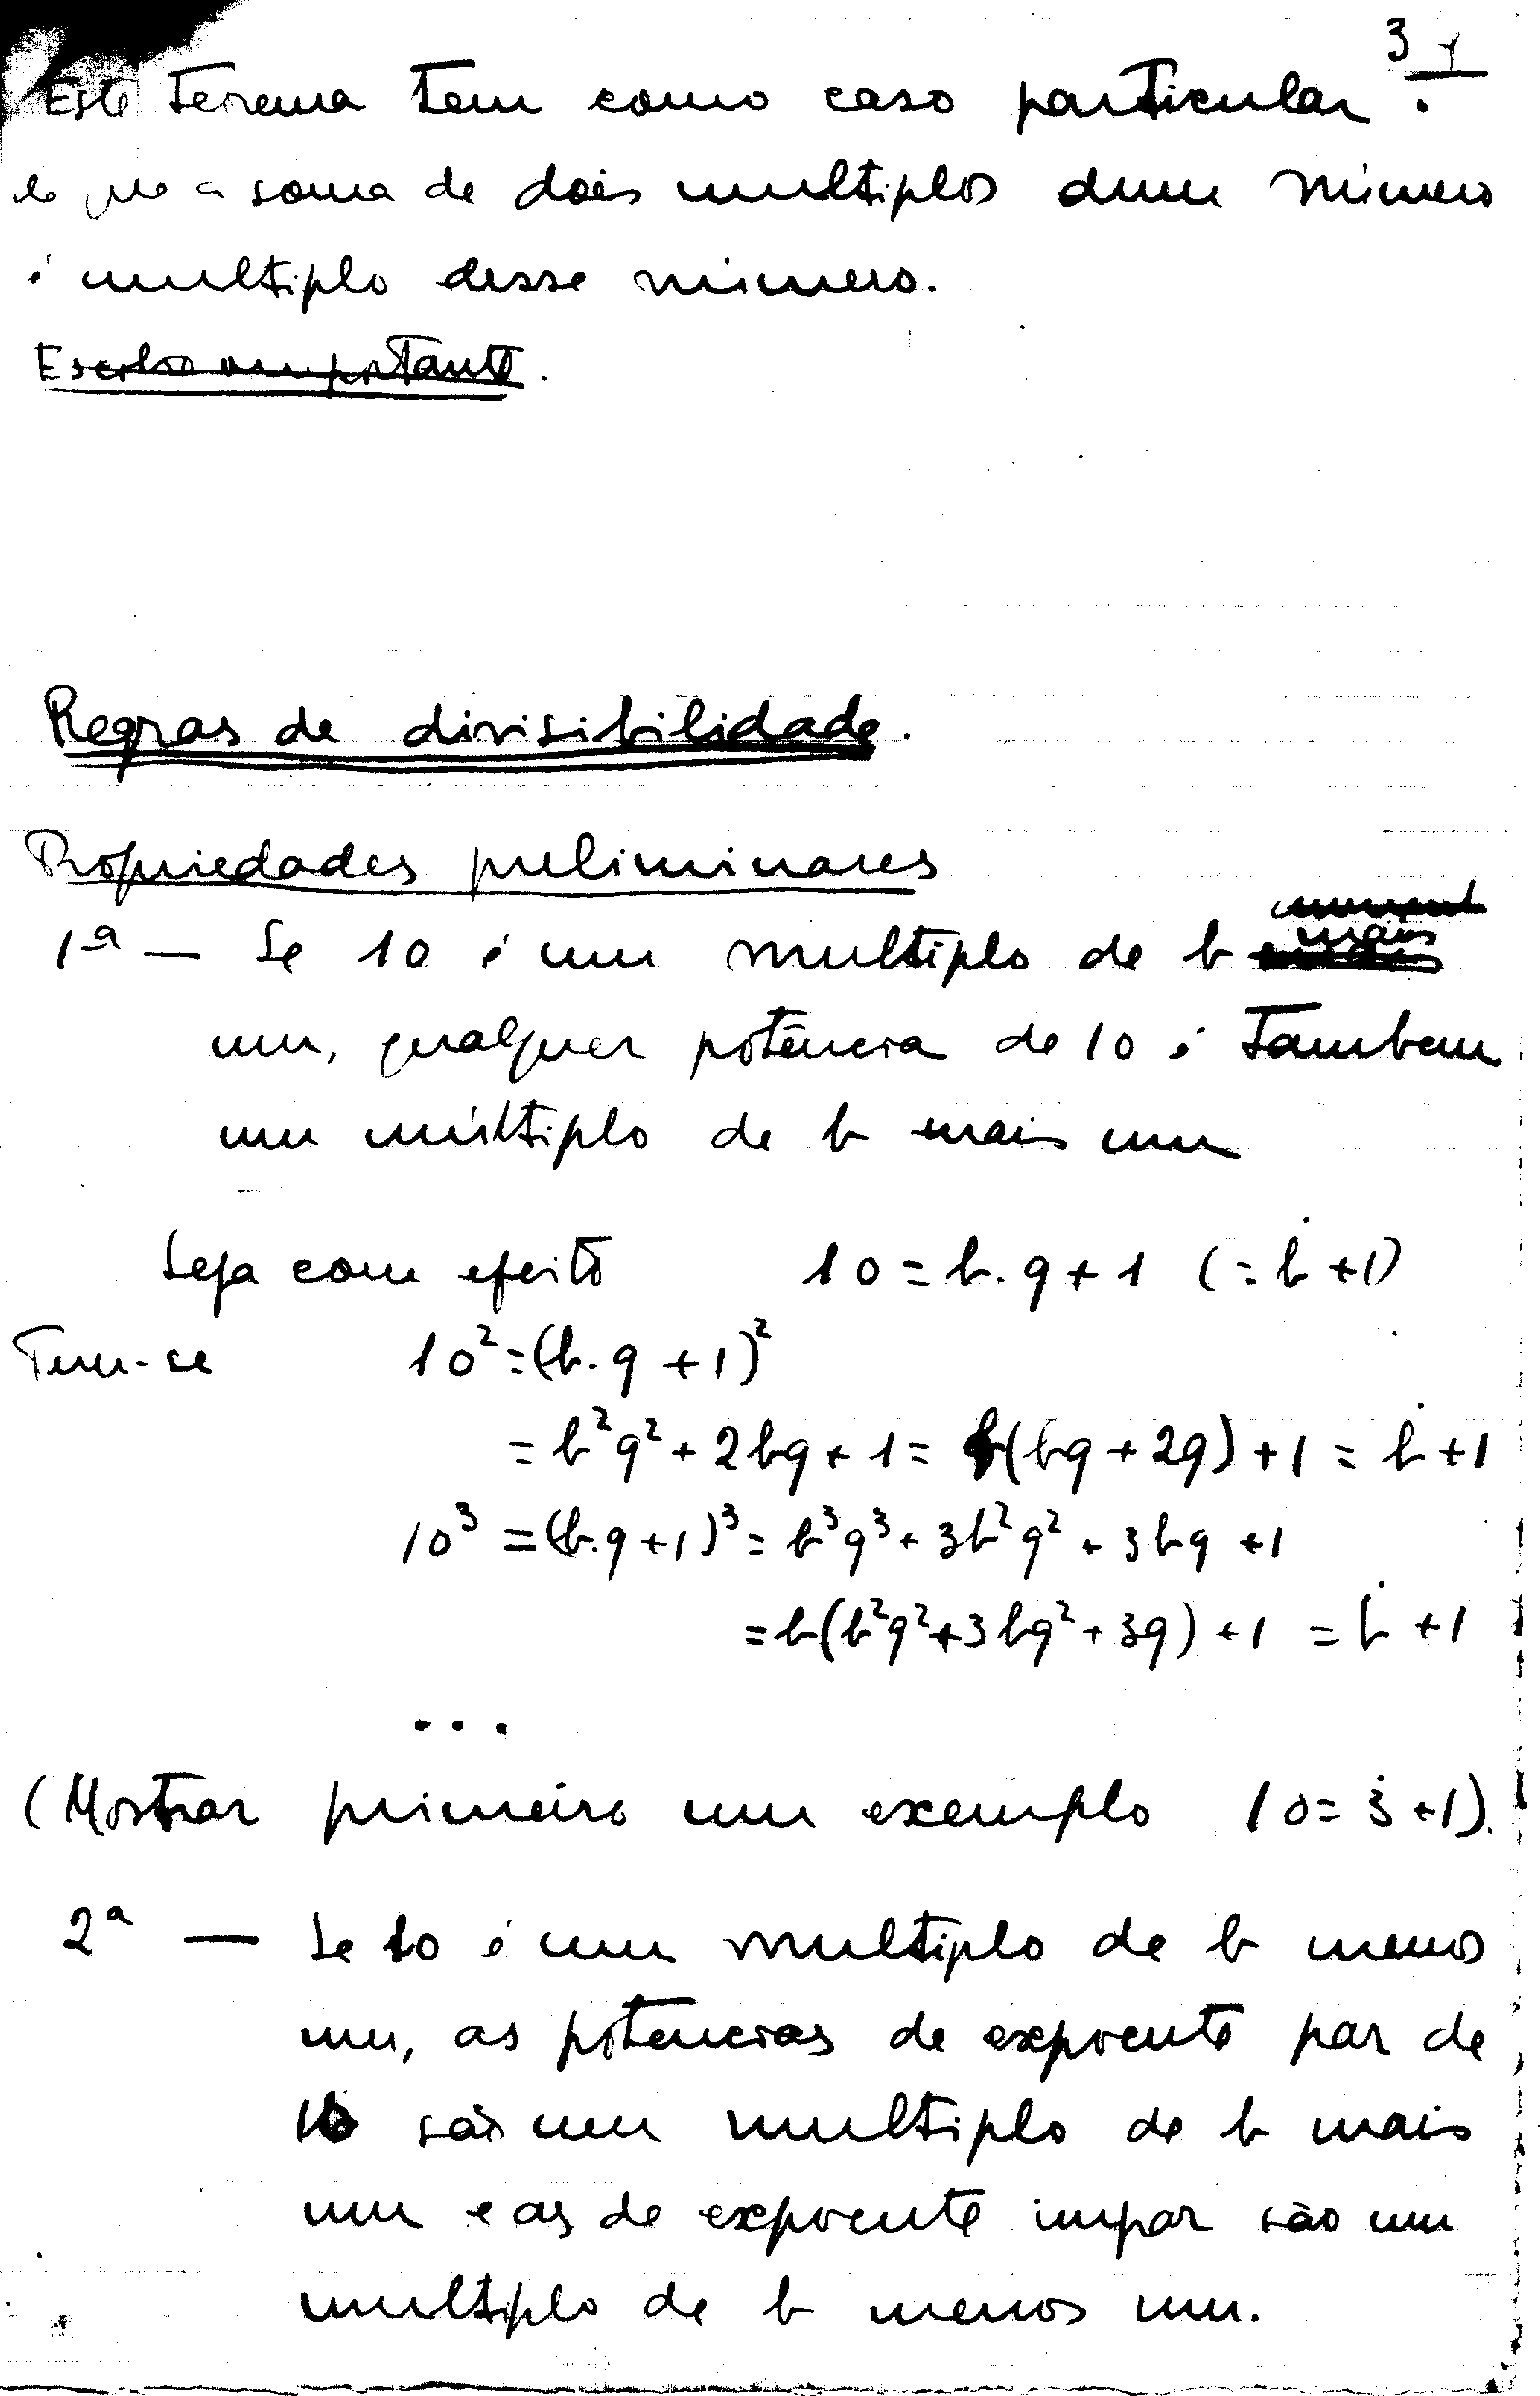 3
Este teorema tem como caso particular:
que a soma de dois multiplos dum número
é multiplo desse número.
Regras de divisibilidade.
Propriedades preliminares
1ª — Se 10 é um multiplo de b mais
um, qualquer potência de 10 é tambem
um múltiplo de b mais um
Seja com efeito 10 = b.q + 1 (= ḃ + 1)
Tem-se 10² = (b.q + 1)²
= b²q² + 2bq + 1 = b(bq + 2q) + 1 = ḃ + 1
10³ = (b.q + 1)³ = b³q³ + 3b²q² + 3bq + 1
= b(b²q² + 3bq² + 3q) + 1 = ḃ + 1
...
(Mostrar primeiro um exemplo 10 = 3̇ + 1).
2ª — Se 10 é um multiplo de b menos
um, as potencias de expoente par de
10 são um multiplo de b mais
um e as de expoente impar são um
multiplo de b menos um.